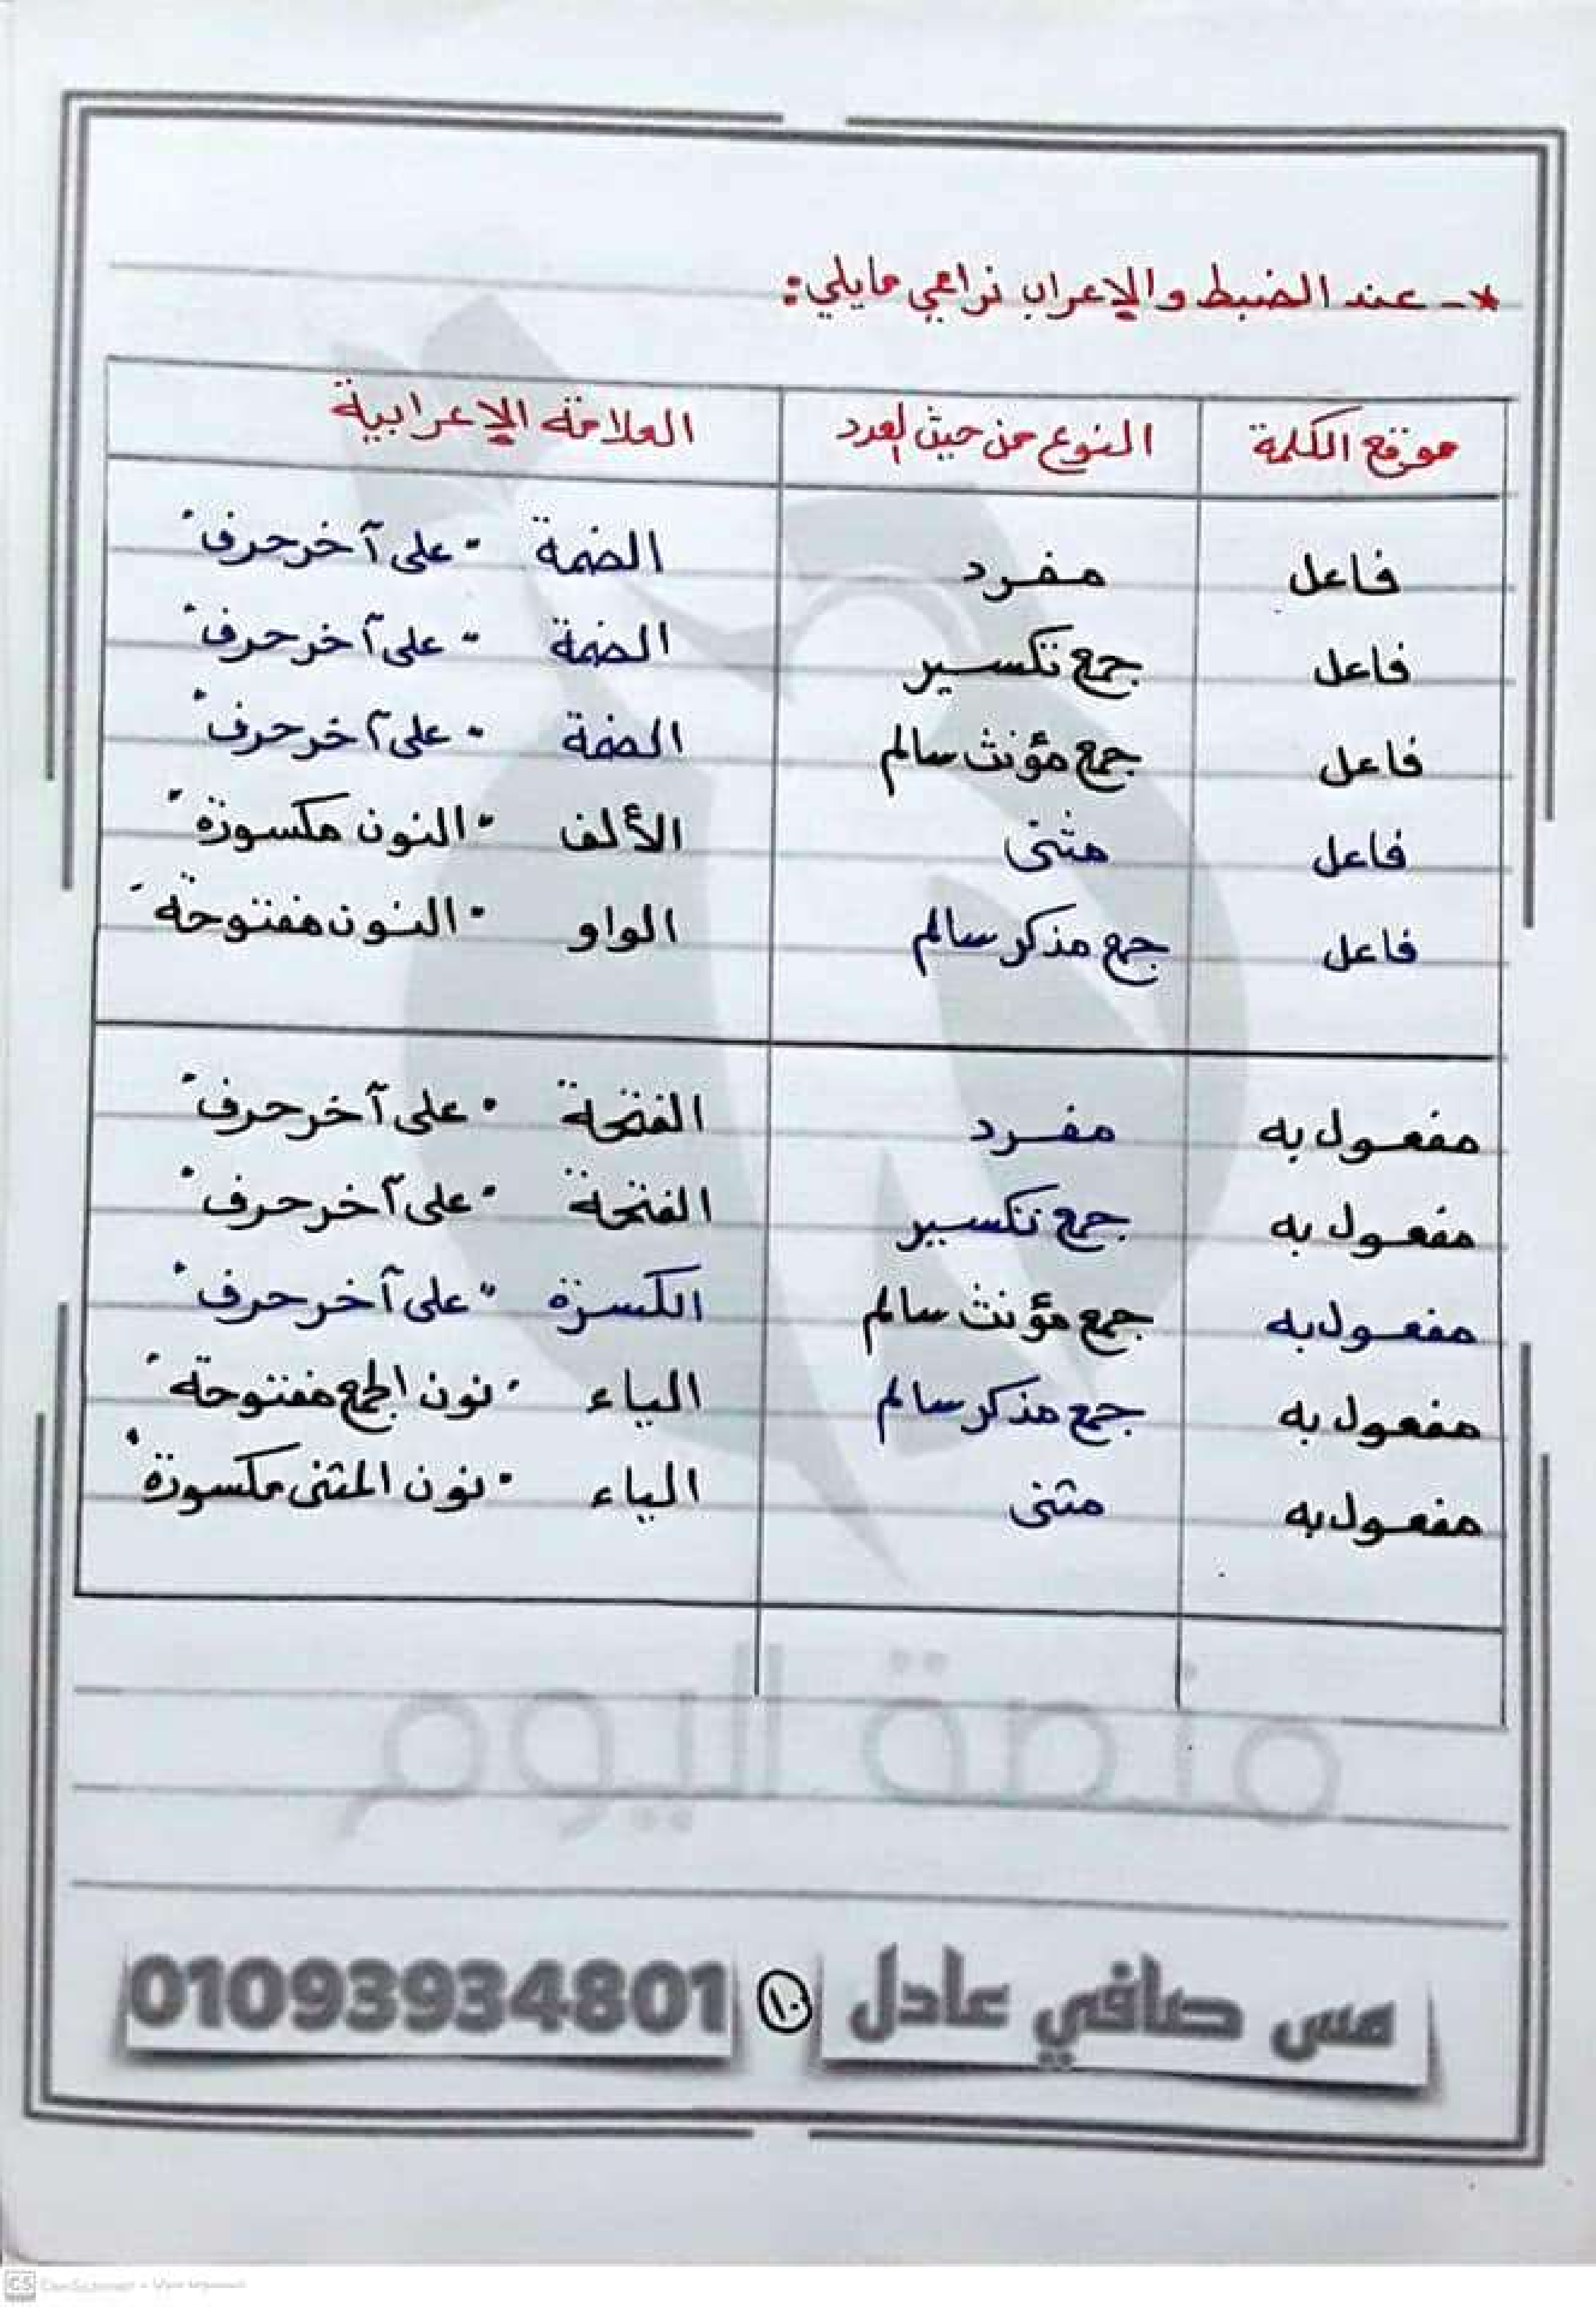 ★- عند الضبط والإعراب نراعي مايلي:
موقع الكلمة النوع من حيث العدد العلامة الإعرابية
فاعل مفرد الضمة "على آخر حرف"
فاعل جمع تكسير الضمة "على آخر حرف"
فاعل جمع مؤنث سالم الضمة "على آخر حرف"
فاعل مثنى الألف "النون مكسورة"
فاعل جمع مذكر سالم الواو "النون مفتوحة"
مفعول به مفرد الفتحة "على آخر حرف"
مفعول به جمع تكسير الفتحة "على آخر حرف"
مفعول به جمع مؤنث سالم الكسرة "على آخر حرف"
مفعول به جمع مذكر سالم الياء "نون الجمع مفتوحة"
مفعول به مثنى الياء "نون المثنى مكسورة"
منصة اليوم
مس صافي عادل ١٠ 01093934801